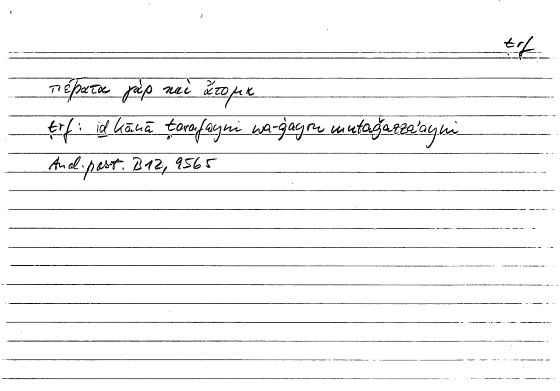 ṭrf
πέρατα γὰρ καὶ ἄτομα
ṭrf: iḏ kānā ṭarafayni wa-ġayru mutaǧazzaʾayni
And. post. B12, 95b5